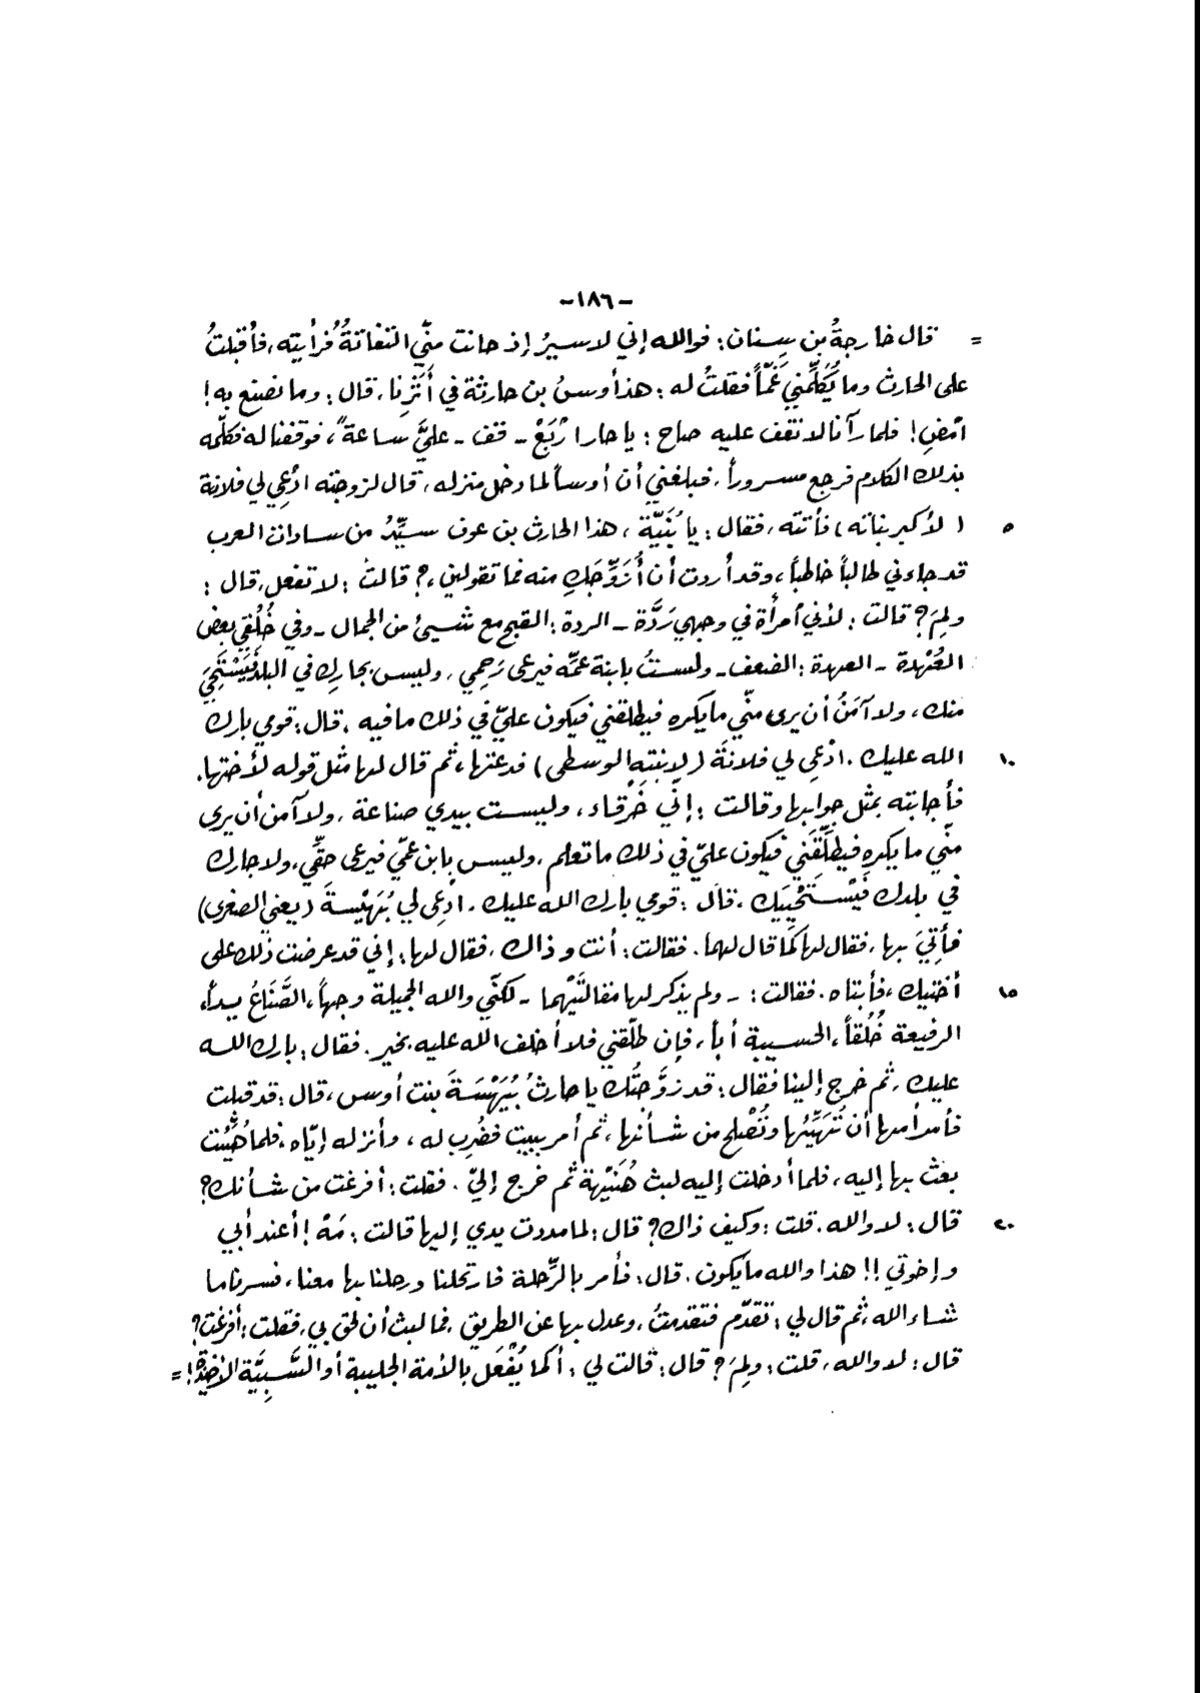 -١٨٦-
= قال خارجةُ بن سِنان: فوالله إني لاسيرُ إذ حانت منّي التفاتةُ فرأيته، فأقبلتُ
على الحارث وما يُكَلِّمُني غَمّاً فقلتُ له: هذا أوسُ بن حارثة في أَثَرِنا، قال: وما نصنع به!
امْضِ! فلما رآنا لا نقف عليه صاح: يا حار ارْبَعْ - قف - عليَّ ساعةً، فوقفنا له فكلّمه
بذلك الكلام فرجع مسروراً، فبلغني أن أوساً لما دخل منزله، قال لزوجته ادْعِي لي فلانة
٥ (لأكبر بناته) فأتته، فقال: يا بُنَيّة، هذا الحارث بن عوف سيِّدُ من سادات العرب
قد جاءني طالباً خاطباً، وقد أردت أن أُزَوِّجَكِ منه فما تقولين؟ قالت: لا تفعل، قال:
ولِمَ؟ قالت: لأني امرأة في وجهي رَدَّة - الردة: القبح مع شيئ من الجمال - وفي خُلُقي بعض
العُهْدة - العهدة: الضعف - ولستُ بابنة عمّه فيرعى رَحِمي، وليس بجارك في البلد فَيَسْتَحْيَ
منك، ولا آمَنُ أن يرى منّي ما يكره فيطلقني فيكون عليّ في ذلك ما فيه، قال: قومي بارك
١٠ الله عليك. ادْعِي لي فلانَة (لابنتِهِ الوسطى) فدعتها، ثم قال لها مثل قوله لأختها.
فأجابته بمثل جوابها وقالت: إنّي خَرْقاء، وليست بيدي صناعة، ولا آمن أن يرى
منّي ما يكره فيطلِّقَني فيكون عليّ في ذلك ما تعلم، وليس بابن عمّي فيرعى حقّي، ولا جارك
في بلدك فَيَسْتَحْيِيَك، قال: قومي بارك الله عليك. ادعِي لي بُهَيْسةَ (يعني الصغرى)
فأُتِيَ بها، فقال لها كما قال لهما. فقالت: أنت وذاك، فقال لها: إني قد عرضت ذلك على
١٥ أختيك، فأبتاه. فقالت: - ولم يذكر لها مقالتَيْهما - لكنّي والله الجميلة وجهاً، الصَّنَاعُ يداً،
الرفيعة خُلُقاً، الحسيبة أباً، فإن طلّقني فلا أخلف الله عليه بخير. فقال: بارك الله
عليك، ثم خرج إلينا فقال: قد زوَّجتُك يا حارثُ بُهَيْسَةَ بنت أوس، قال: قد قبلت
فأمر أمها أن تُهَيِّئها وتُصْلح من شأنها، ثم أمر ببيت فضُرِب له، وأنزله إيّاه، فلما هُيِّئت
بعث بها إليه، فلما أدخلت إليه لبث هُنَيْهة ثم خرج إليّ. فقلت: أفرغت من شأنك؟
٢٠ قال: لا والله. قلت: وكيف ذاك؟ قال: لما مددت يدي إليها قالت: مَهْ! أعند أبي
وإخوتي!! هذا والله ما يكون. قال: فأمر بالرِّحلة فارتحلنا ورحلنا بها معنا، فسرنا ما
شاء الله، ثم قال لي: تقدّم فتقدمتُ، وعدل بها عن الطريق، فما لبث أن لحق بي، فقلت: أفرغت؟
قال: لا والله، قلت: ولِمَ؟ قال: قالت لي: أكما يُفْعَل بالأمة الجليبة أو السَّبِيَّة الأخيذة! =